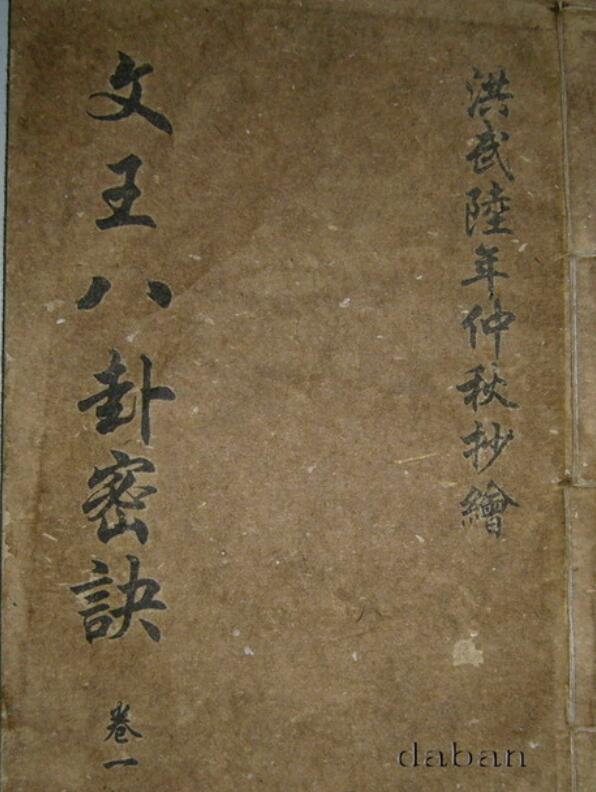 洪武陸年仲秋抄繪
文王八卦密訣
卷一
daban